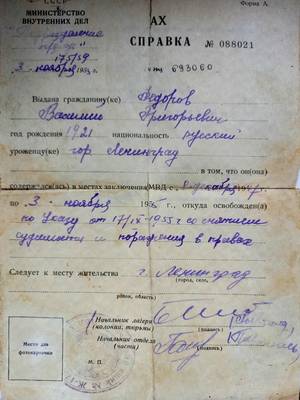 СССР
МИНИСТЕРСТВО
ВНУТРЕННИХ ДЕЛ
Форма А.
АХ
СПРАВКА № 088021
17/5/59
"3" ноября 195 г.
693060
Выдана гражданину(ке) Федоров
Василию Григорьевич
год рождения 1921 национальность русский
уроженцу(ке) гор. Ленинград
в том, что он(она)
содержался(ась) в местах заключения МВД с 8 декабря
по 3 ноября 1955 г. откуда освобожден(а)
по Указу от 17/IX-1955 г со снятием
судимости и поражения в правах
Следует к месту жительства г. Ленинград
(город, село,
район, область)
Начальник лагеря
(колонии, тюрьмы)
(подпись)
Начальник отдела
(части)
(подпись)
Место для
фотокарточки
М. П.